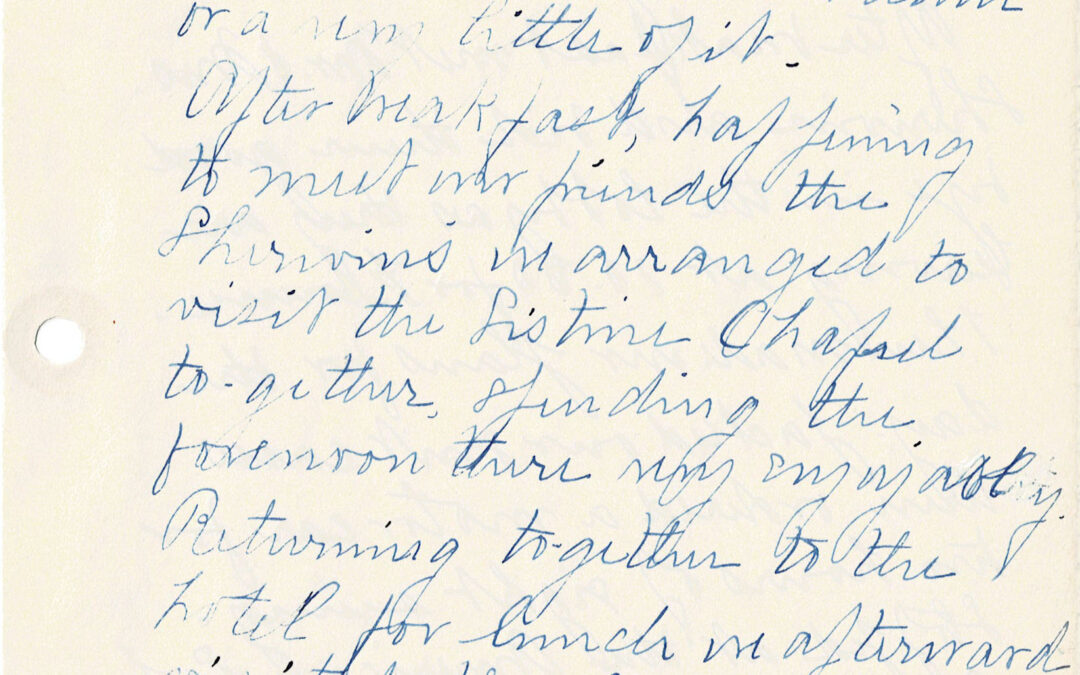 or a very little of it.
After breakfast, happening
to meet our friends the
Sherwins we arranged to
visit the Sistine Chapel
to-gether, spending the
forenoon there very enjoyably.
Returning to-gether to the
hotel for lunch we afterward